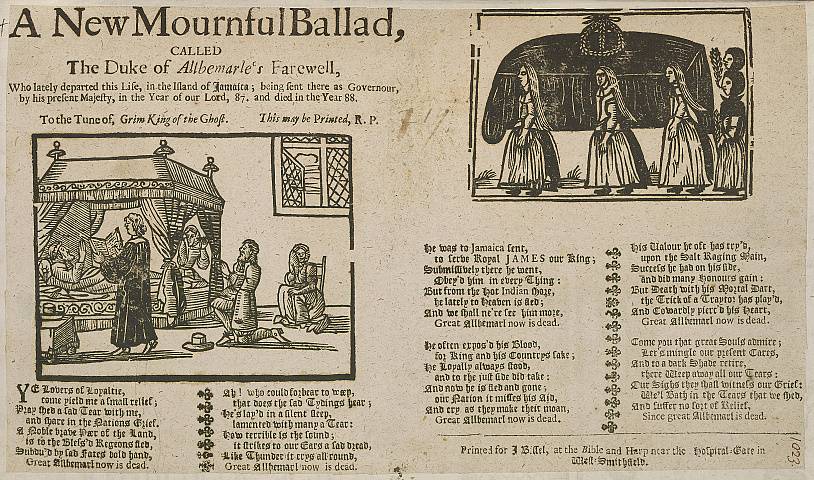 A New Mournful Ballad,
CALLED
The Duke of Allbemarle's Farewell,
Who lately departed this Life, in the Island of Jamaica; being sent there as Governour,
by his present Majesty, in the Year of our Lord, 87. and died in the Year 88.
To the Tune of, Grim King of the Ghost. This may be Printed, R. P.
YE Lovers of Loyaltie,
come yield me a small relief;
Pray shed a sad Tear with me,
and share in the Nations Grief.
A Noble brave Peer of the Land,
is to the Bless'd Regions fled,
Subdu'd by sad Fates bold hand,
Great Allbemarl now is dead.
Ah! who could forbear to weep,
that does the sad Tydings hear;
He's lay'd in a silent sleep,
lamented with many a Tear:
How terrible is the sound;
it strikes to our Ears a sad dread,
Like Thunder it crys all round,
Great Allbemarl now is dead.
He was to Jamaica sent,
to serve Royal JAMES our King;
Submissively there he went,
Obey'd him in every Thing:
But from the Hot Indian shore,
he lately to Heaven is fled;
And we shall ne're see him more,
Great Allbemarl now is dead.
He often expos'd his Blood,
for King and his Countrys sake;
He Loyally always stood,
and to the just side did take:
And now he is fled and gone;
our Nation it misses his Aid,
And cry as they make their moan,
Great Allbemarl now is dead.
His Valour he oft has try'd,
upon the Salt Raging Main,
Success he had on his side,
and did many Honours gain:
But Death with his Mortal Dart,
the Trick of a Traytor has play'd,
And Cowardly pierc'd his Heart,
Great Allbemarl now is dead.
Come you that great Souls admire;
Let's mingle our present Cares,
And to a dark Shade retire,
there Weep away all our Tears:
Our Sighs they shall witness our Grief;
We'l Bath in the Tears that we shed,
And suffer no sort of Relief,
Since great Allbemarl is dead.
Printed for J Bissel, at the Bible and Harp near the Hospital-Gate in
West-Smithfield.